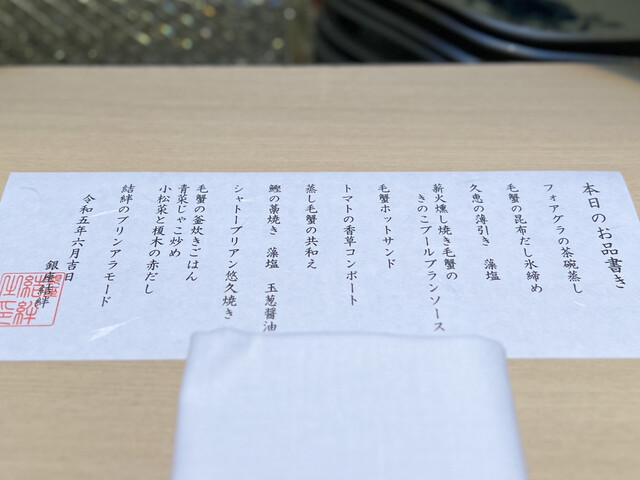 本日のお品書き
フォアグラの茶碗蒸し
毛蟹の昆布だし氷締め
久恵の薄引き　藻塩
薪火燻し焼き毛蟹の
きのこブールブランソース
毛蟹ホットサンド
トマトの香草コンポート
蒸し毛蟹の共和え
鰹の藁焼き　藻塩　玉葱醤油
シャトーブリアン悠久焼き
毛蟹の釜炊きごはん
青菜じゃこ炒め
小松菜と榎木の赤だし
結絆のプリンアラモード
令和五年六月吉日
銀座結絆